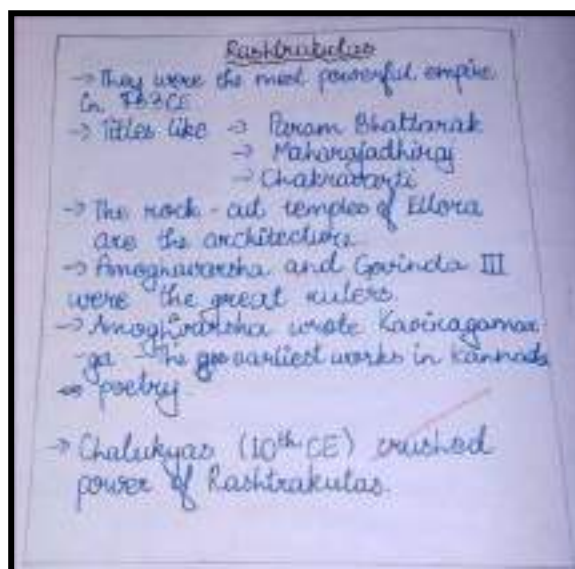 Rashtrakutas
→ They were the most powerful empire
in 753CE
→ Titles like → Param Bhattarak
→ Maharajadhiraj
→ Chakravarti
→ The rock-cut temples of Ellora
are the architecture.
→ Amoghavarsha and Govinda III
were the great rulers.
→ Amoghvarsha wrote Kaviragamar
-ga - The earliest works in Kannada
poetry
→ Chalukyas (10th CE) crushed
power of Rashtrakutas.